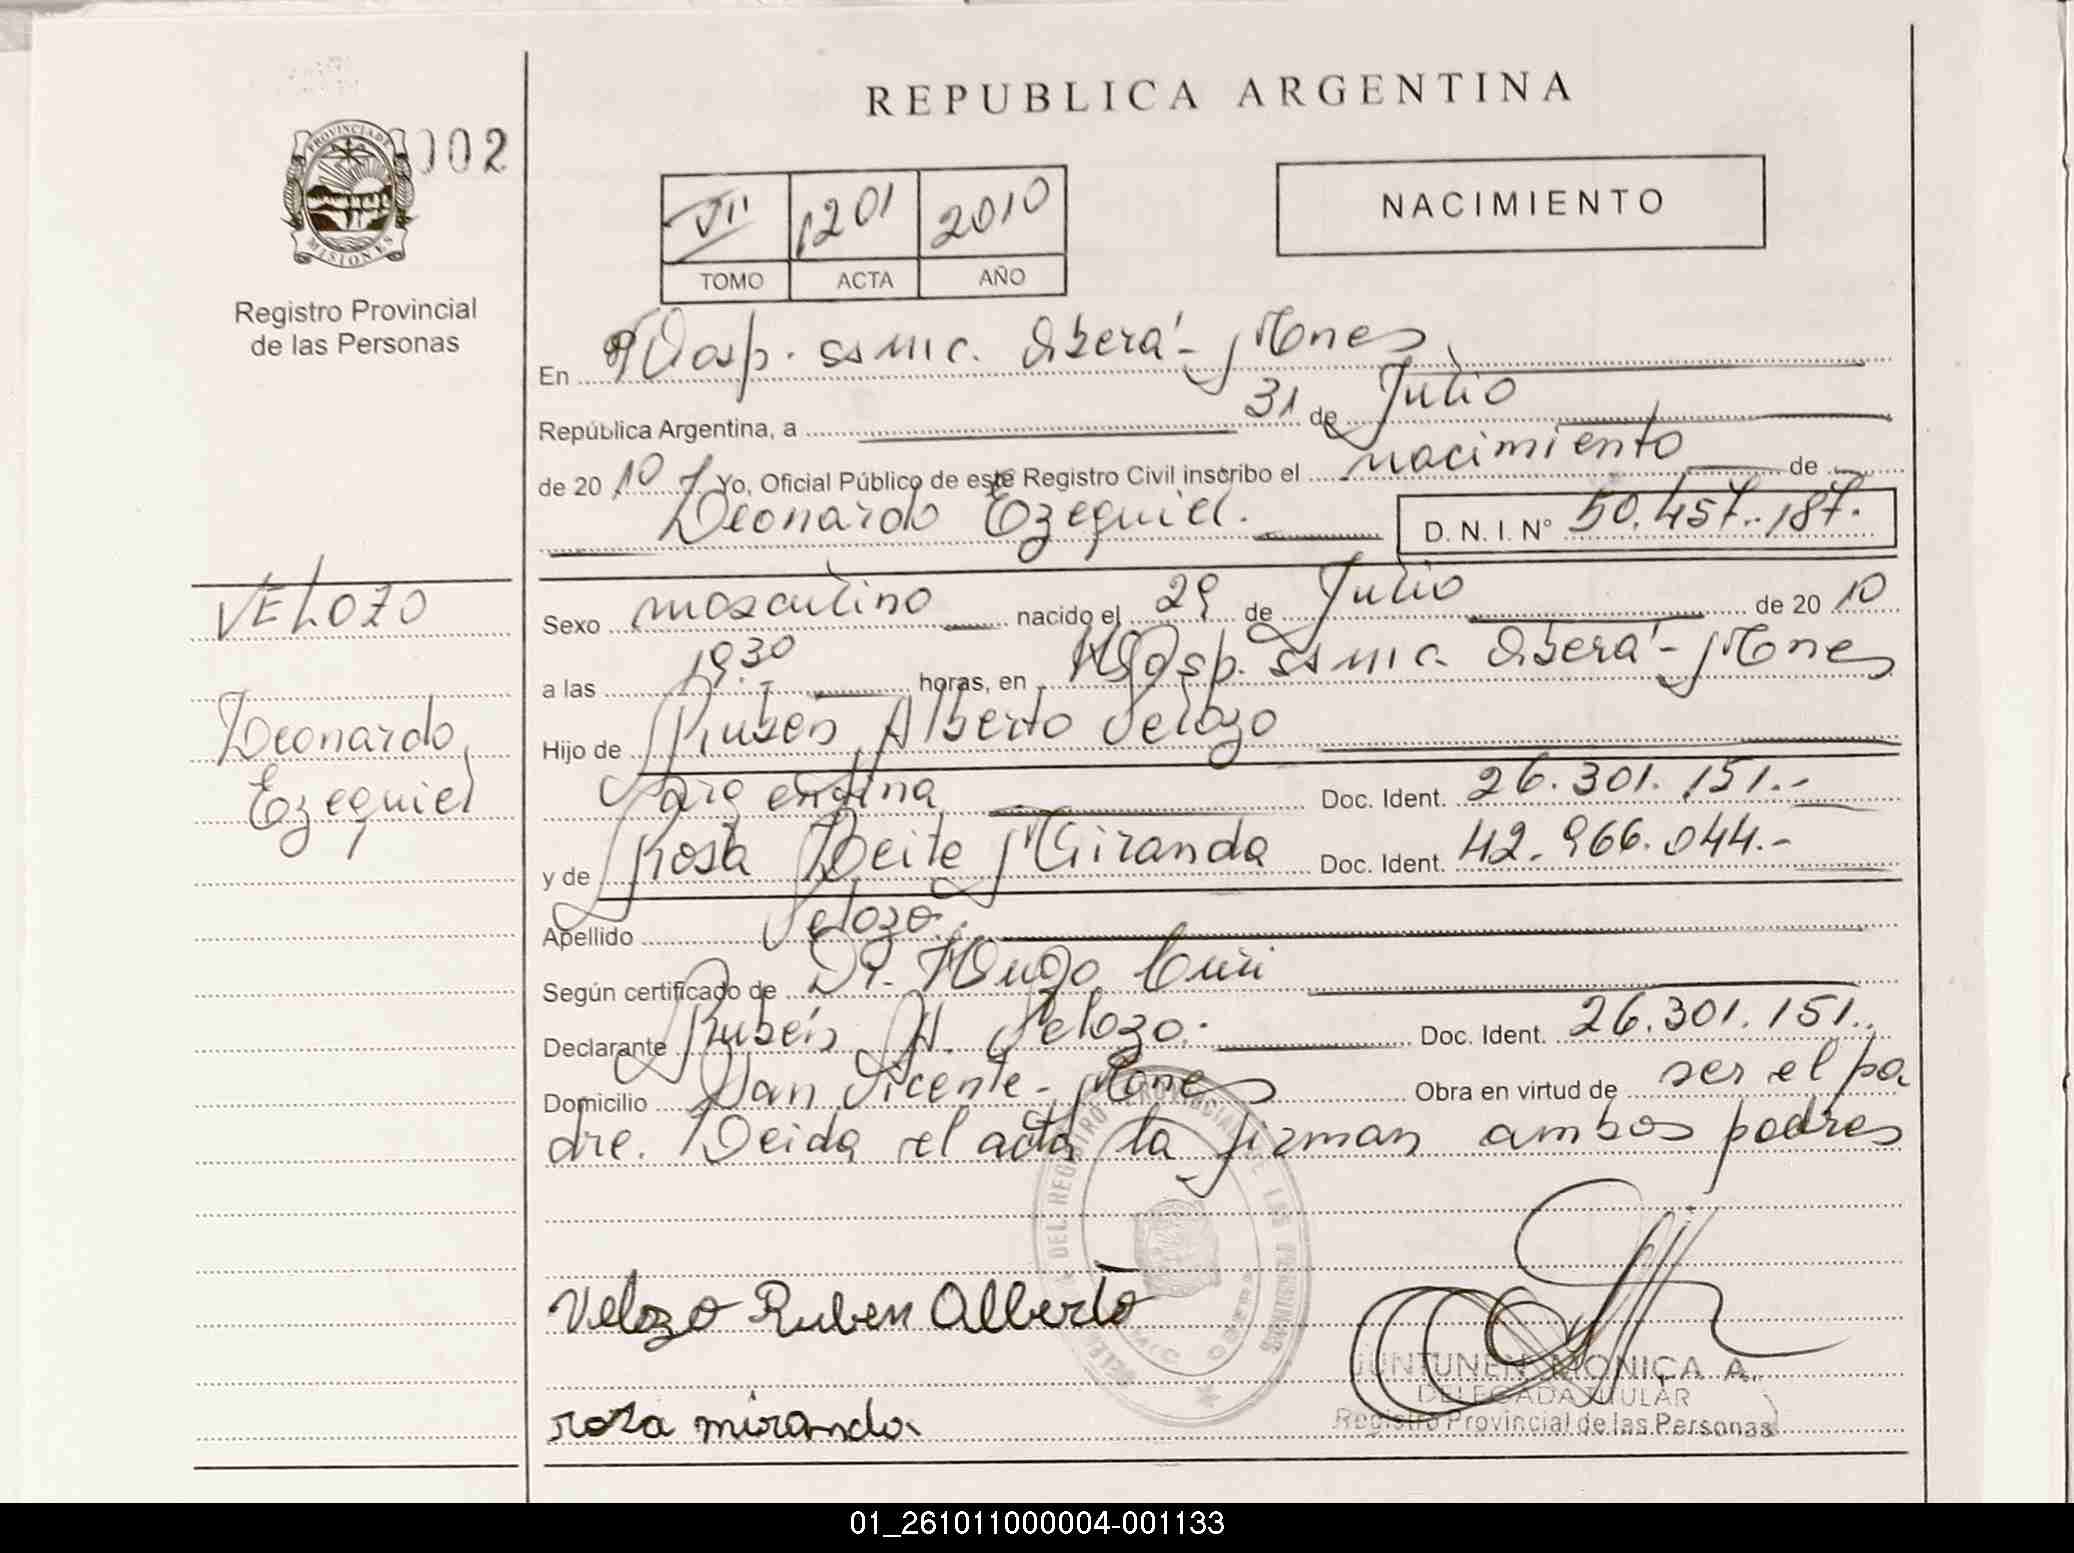 REPUBLICA ARGENTINA
PROVINCIA DE
MISIONES
002
Registro Provincial
de las Personas
VII 1201 2010
TOMO ACTA AÑO
NACIMIENTO
En Hosp. ssmic. Oberá - Mnes
República Argentina, a 31 de Julio
de 2010 Yo, Oficial Público de este Registro Civil inscribo el nacimiento de
Leonardo Ezequiel. D. N. I. Nº 50.457.187.
VELOZO
Leonardo
Ezequiel
Sexo masculino nacido el 29 de Julio de 2010
a las 19.30 horas, en Hosp. ssmic. Oberá - Mnes
Hijo de Ruben Alberto Velozo
argentina Doc. Ident. 26.301.151.-
y de Rosa Leite Miranda Doc. Ident. 42.966.044.-
Apellido Velozo.
Según certificado de Dr. Hugo Curi
Declarante Ruben A. Velozo. Doc. Ident. 26.301.151.
Domicilio San Vicente - Mnes Obra en virtud de ser el pa
dre. Leida el acta la firman ambos padres
DEL REGISTRO PROVINCIAL DE LAS PERSONAS
Velozo Ruben Alberto
rosa miranda
JUNTUNEN MONICA A.
DELEGADA TITULAR
Registro Provincial de las Personas
01_261011000004-001133